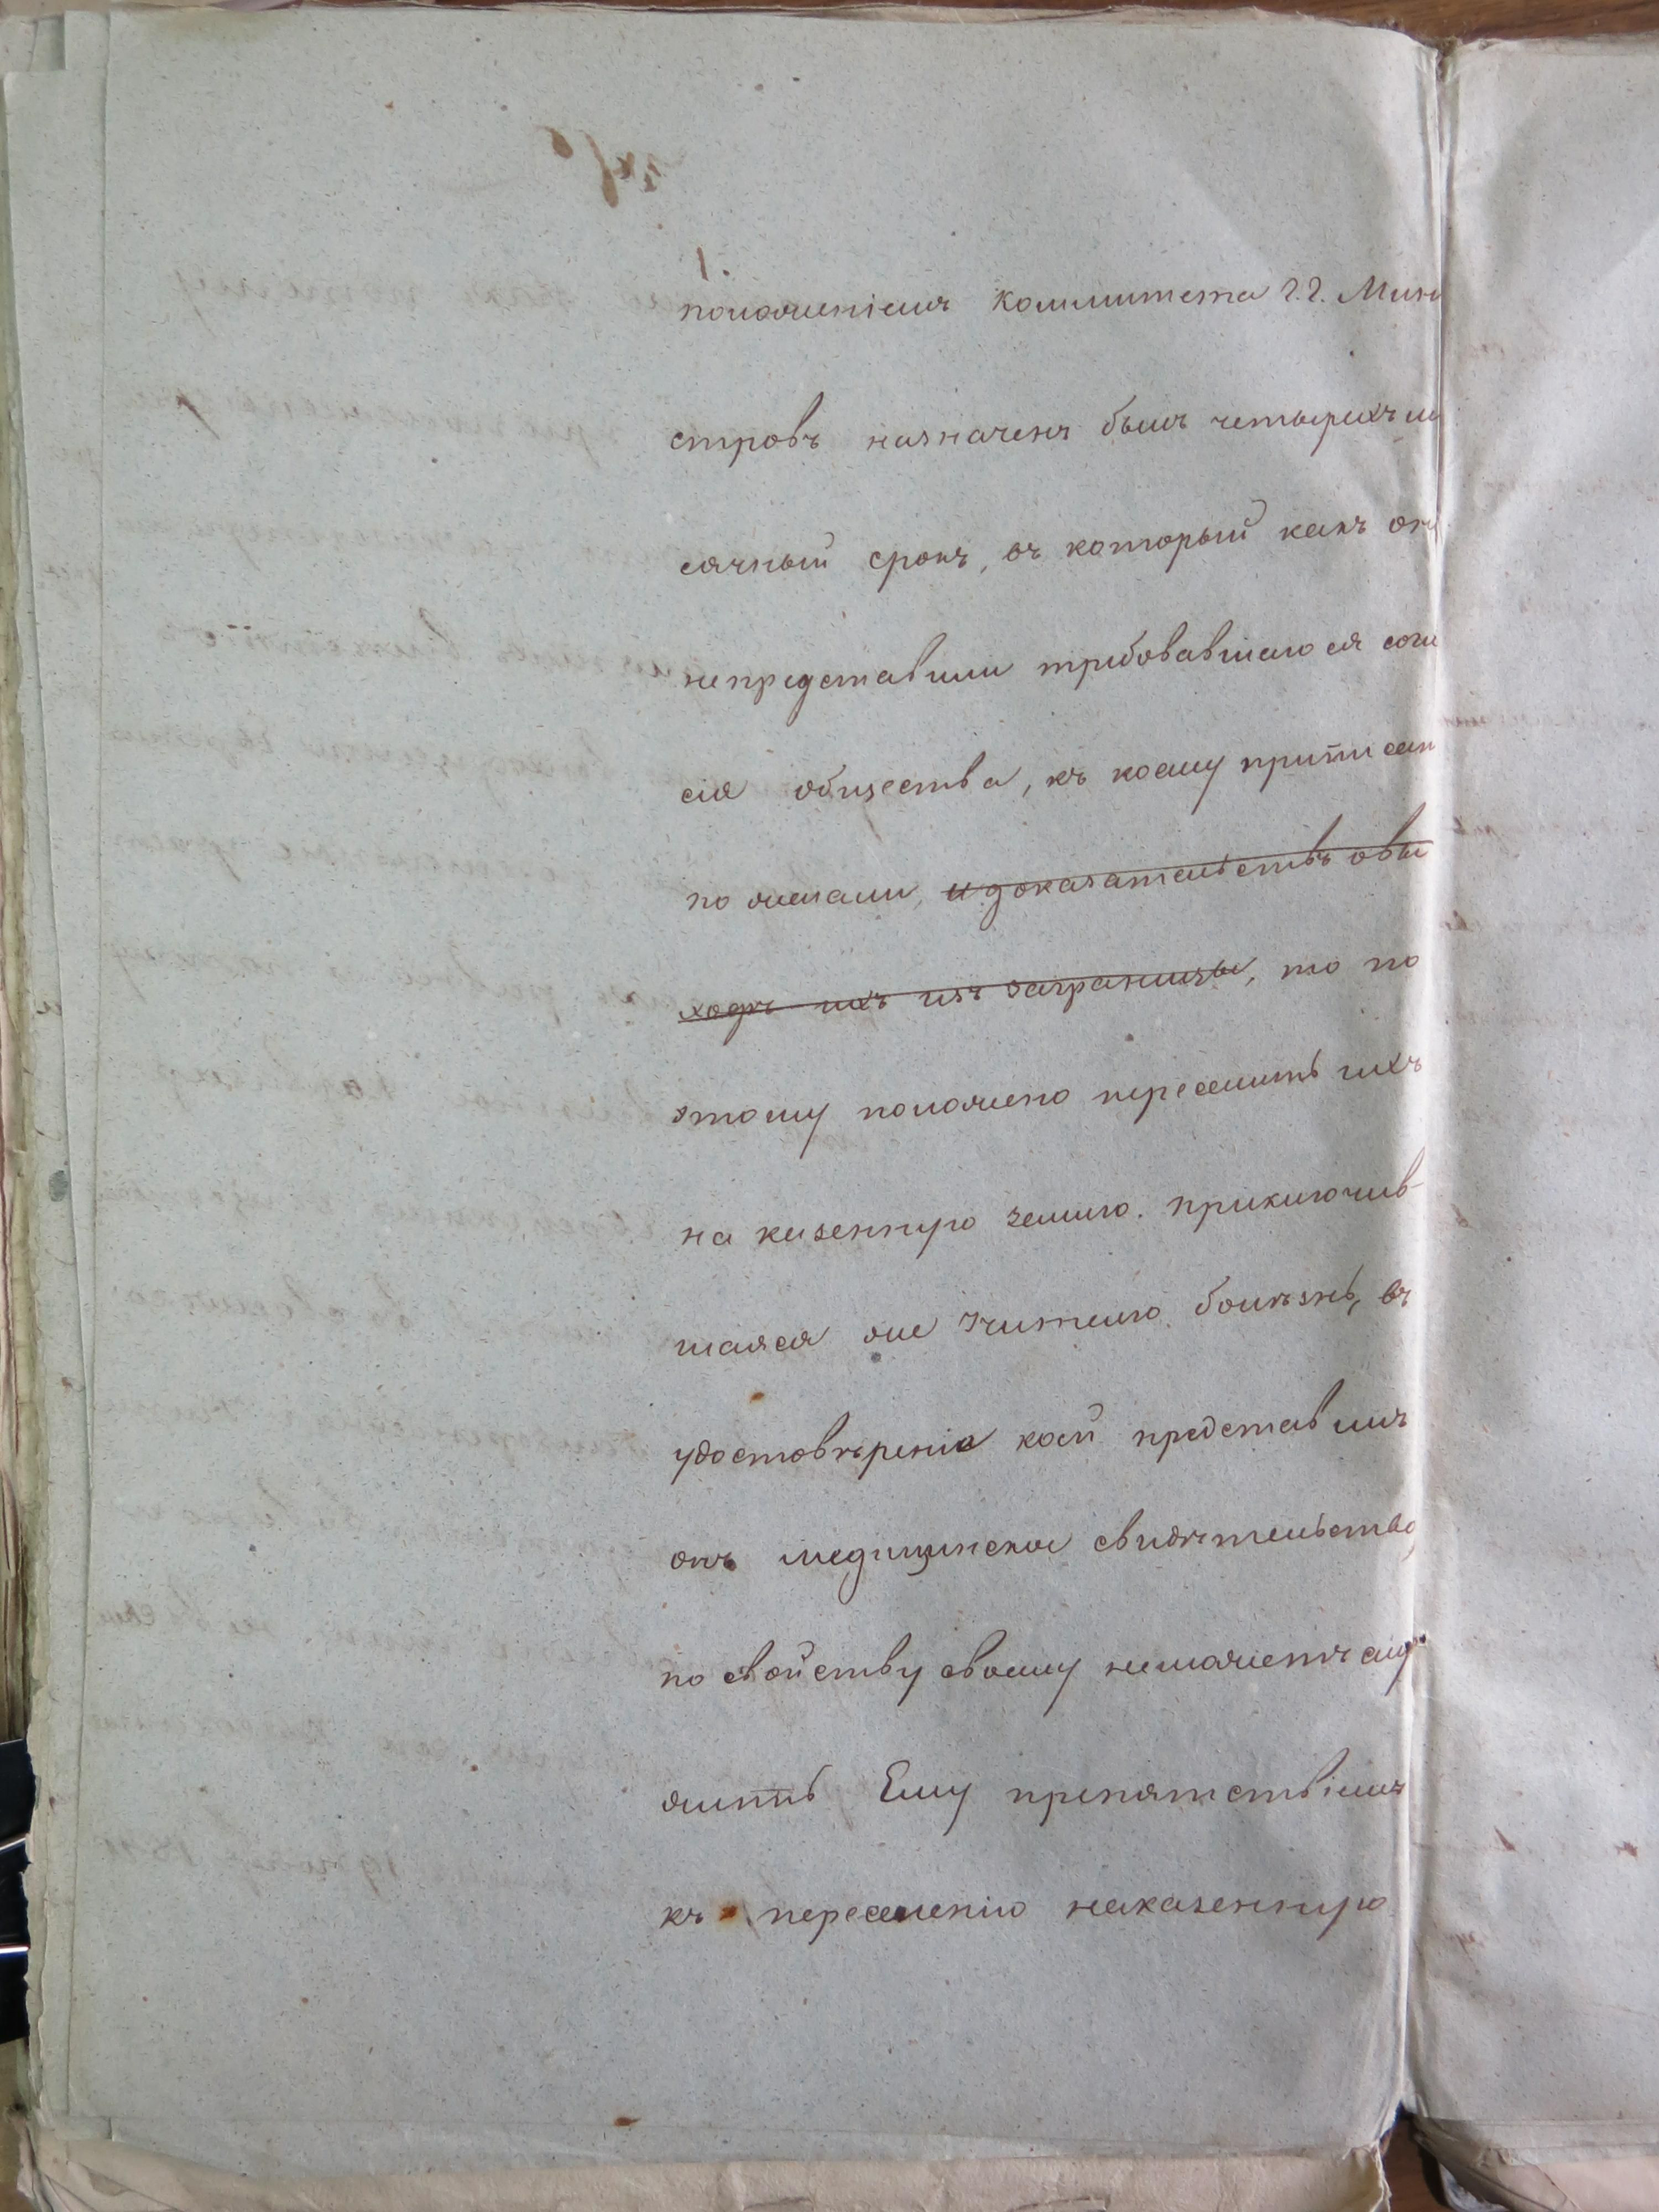 положеніемъ Коммитета г.г. Мини
стровъ назначенъ былъ четырехъ м
сячный срокъ, въ который какъ они
непредставили требовавшаго ся согла
сія общества, къ коему приписан
по желали, и доказательствъ о вы
ходѣ ихъ изъ заграницы, то по
этому положено переселить ихъ
на казенную землю. Приключив
шаяся же Учителю болѣзнь, въ
удостовѣреніе коей представилъ
онъ медицинское свидѣтельство,
по свойству своему неможетъ слу
жить Ему препятствіемъ
къ переселенію наказенную